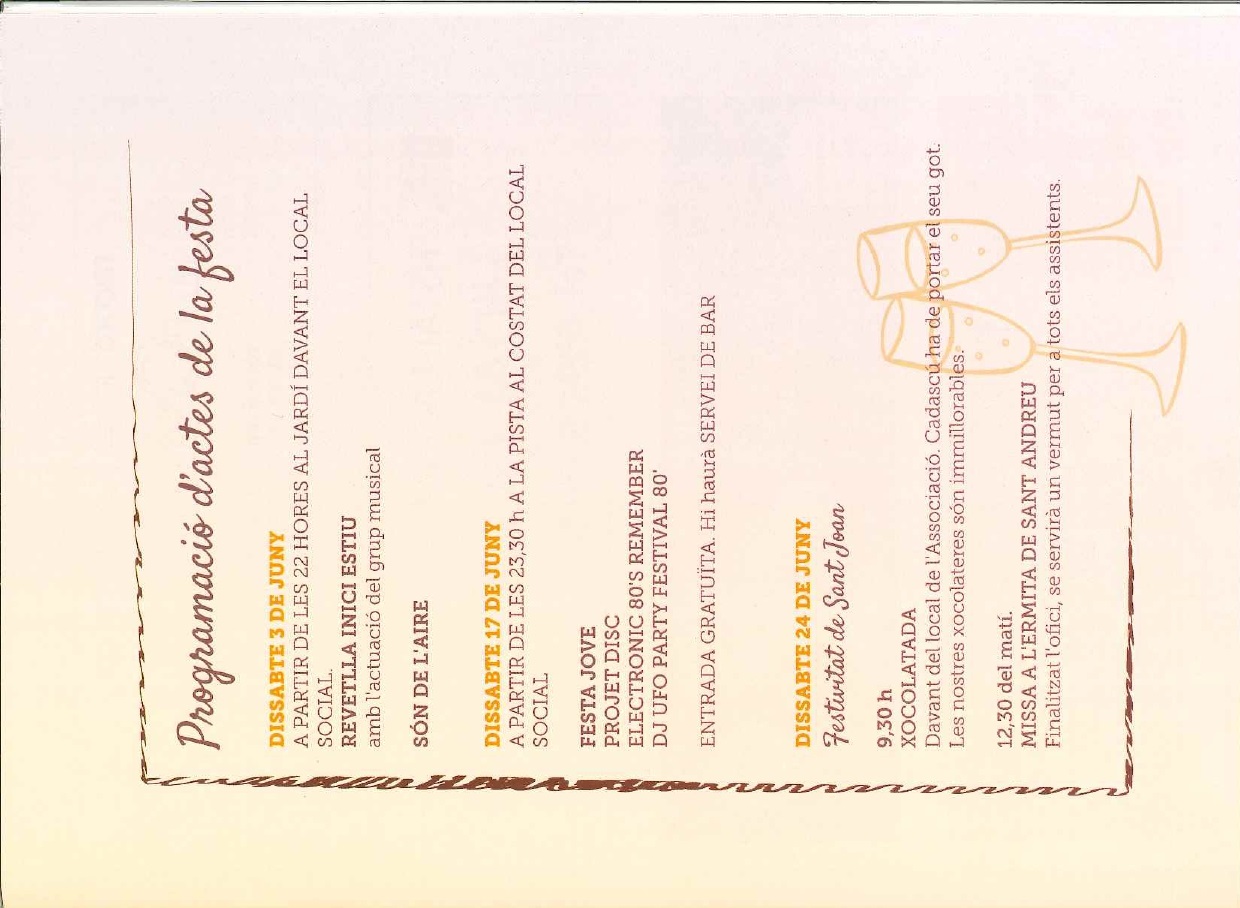 Programació d'actes de la festa
DISSABTE 3 DE JUNY
A PARTIR DE LES 22 HORES AL JARDÍ DAVANT EL LOCAL
SOCIAL.
REVETLLA INICI ESTIU
amb l'actuació del grup musical
SÓN DE L'AIRE
DISSABTE 17 DE JUNY
A PARTIR DE LES 23,30 h A LA PISTA AL COSTAT DEL LOCAL
SOCIAL
FESTA JOVE
PROJET DISC
ELECTRONIC 80'S REMEMBER
DJ UFO PARTY FESTIVAL 80'
ENTRADA GRATUÏTA. Hi haurà SERVEI DE BAR
DISSABTE 24 DE JUNY
Festivitat de Sant Joan
9,30 h
XOCOLATADA
Davant del local de l'Associació. Cadascú ha de portar el seu got.
Les nostres xocolateres són immillorables.
12,30 del matí.
MISSA A L'ERMITA DE SANT ANDREU
Finalitzat l'ofici, se servirà un vermut per a tots els assistents.